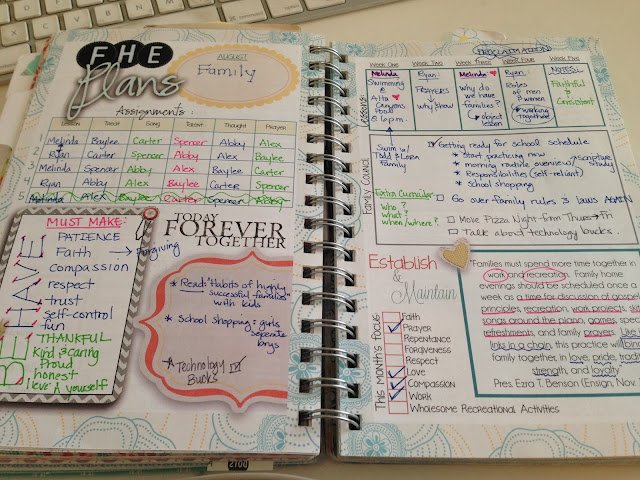 FHE
plans
AUGUST
Family
Assignments:
Lesson Treat Song Parent Thought Prayer
1 Melinda Baylee Carter Spencer Abby Alex
2 Ryan Carter Spencer Abby Alex Baylee
3 Melinda Spencer Abby Alex Baylee Carter
4 Ryan Abby Alex Baylee Carter Spencer
5 Melinda Alex Baylee Carter Spencer Abby
MUST MAKE:
BEHAVE
PATIENCE
Faith → Forgiving
compassion
respect
trust
self-control
fun
THANKFUL
Kind & caring
Proud
honest
love A yourself
TODAY
FOREVER
TOGETHER
* Read "Habits of highly
successful families"
with kids
* School shopping: girls
seperate
boys
* Technology
Bucks
2100
PROCLAMATION
Week One Week Two Week Three Week Four Week Five
LESSONS
Melinda
Swimming
@
Alta
Canyons
Food
@ 6pm.
Ryan
PRAYERS
↓
why & how
Melinda
Why do
we have
families?
↳ object
lesson
Ryan
Roles
of men
& women
working
together
Faithful
&
Consistent
FAMILY COUNCIL
Swim w/
Todd & Lorn
Family
Extra Curricular
Who?
what?
when/where?
Getting ready for school schedule
* Start practicing now
* morning routine overview/scripture study
* Responsibilities (self-reliant)
* school shopping
Go over family rules & laws AGAIN
Move Pizza Night from Thurs → Fri
Talk about technology bucks.
Establish
& Maintain
THIS MONTH'S FOCUS
Faith
Prayer
Repentance
Forgiveness
Respect
Love
Compassion
Work
Wholesome Recreational Activities
"Families must spend more time together in
work and recreation. Family home
evenings should be scheduled once a
week as a time for discussion of gospel
principles, recreation, work projects, skits,
songs around the piano, games, special
refreshments, and family prayers. Like iron
links in a chain, this practice will bind a
family together, in love, pride, tradition,
strength, and loyalty."
Pres. Ezra T. Benson (Ensign, Nov.